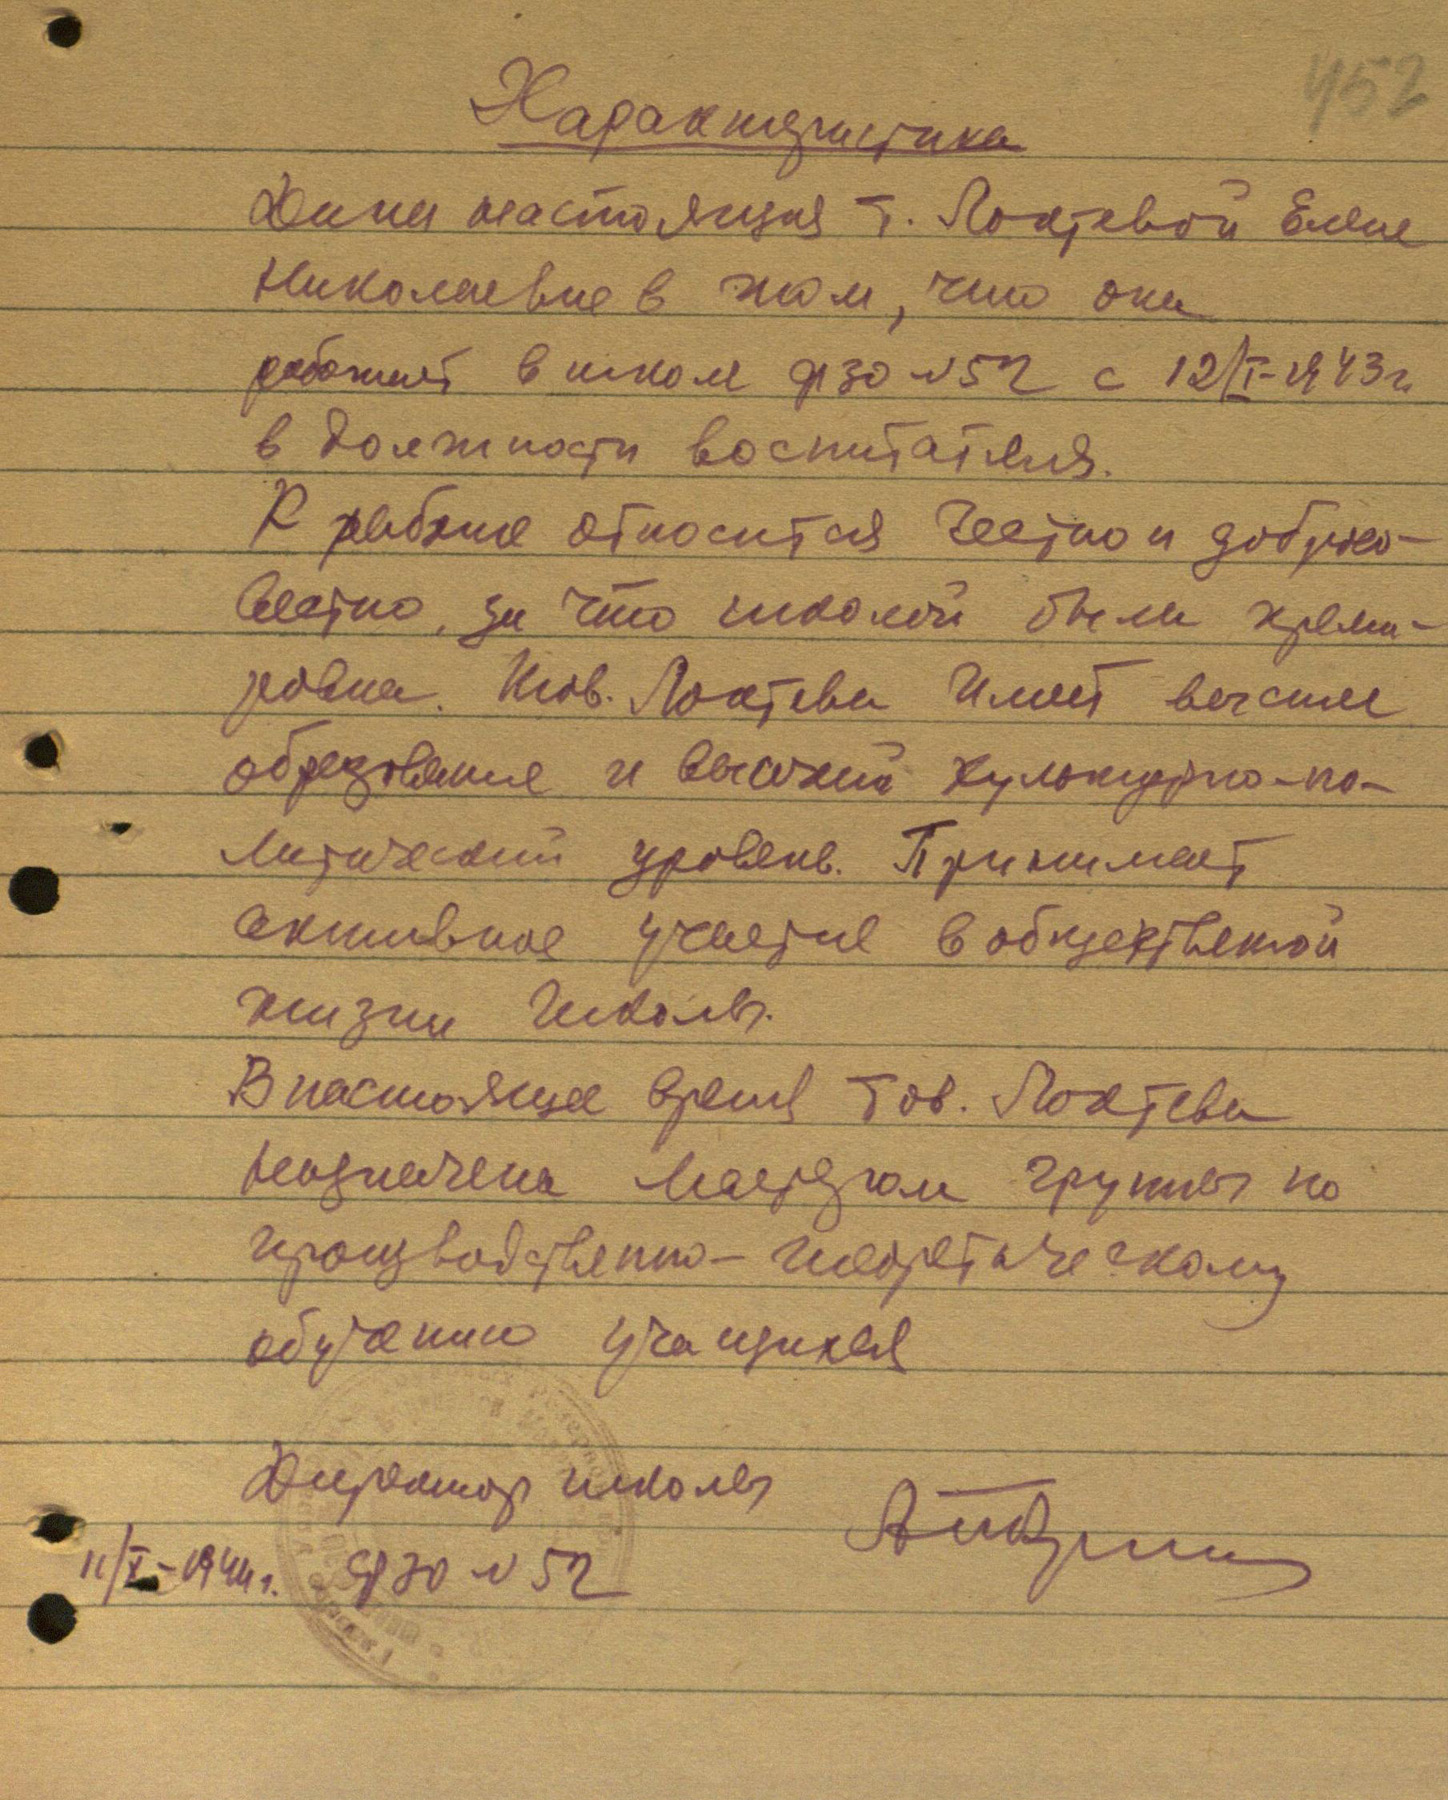 452
Характеристика
Дана настоящая т. Локтевой Елене
Николаевне в том, что она
работает в школе ФЗО №52 с 12/I-1943г.
в должности воспитателя.
К работе относится честно и добросо-
вестно, за что школой была преми-
рована. Тов. Локтева имеет высшее
образование и высокий культурно-по-
литический уровень. Принимает
активное участие в общественной
жизни школы.
В настоящее время тов. Локтева
назначена мастером группы по
производственно-теоретическому
обучению учащихся
Директор школы
11/X-1944г. ФЗО №52